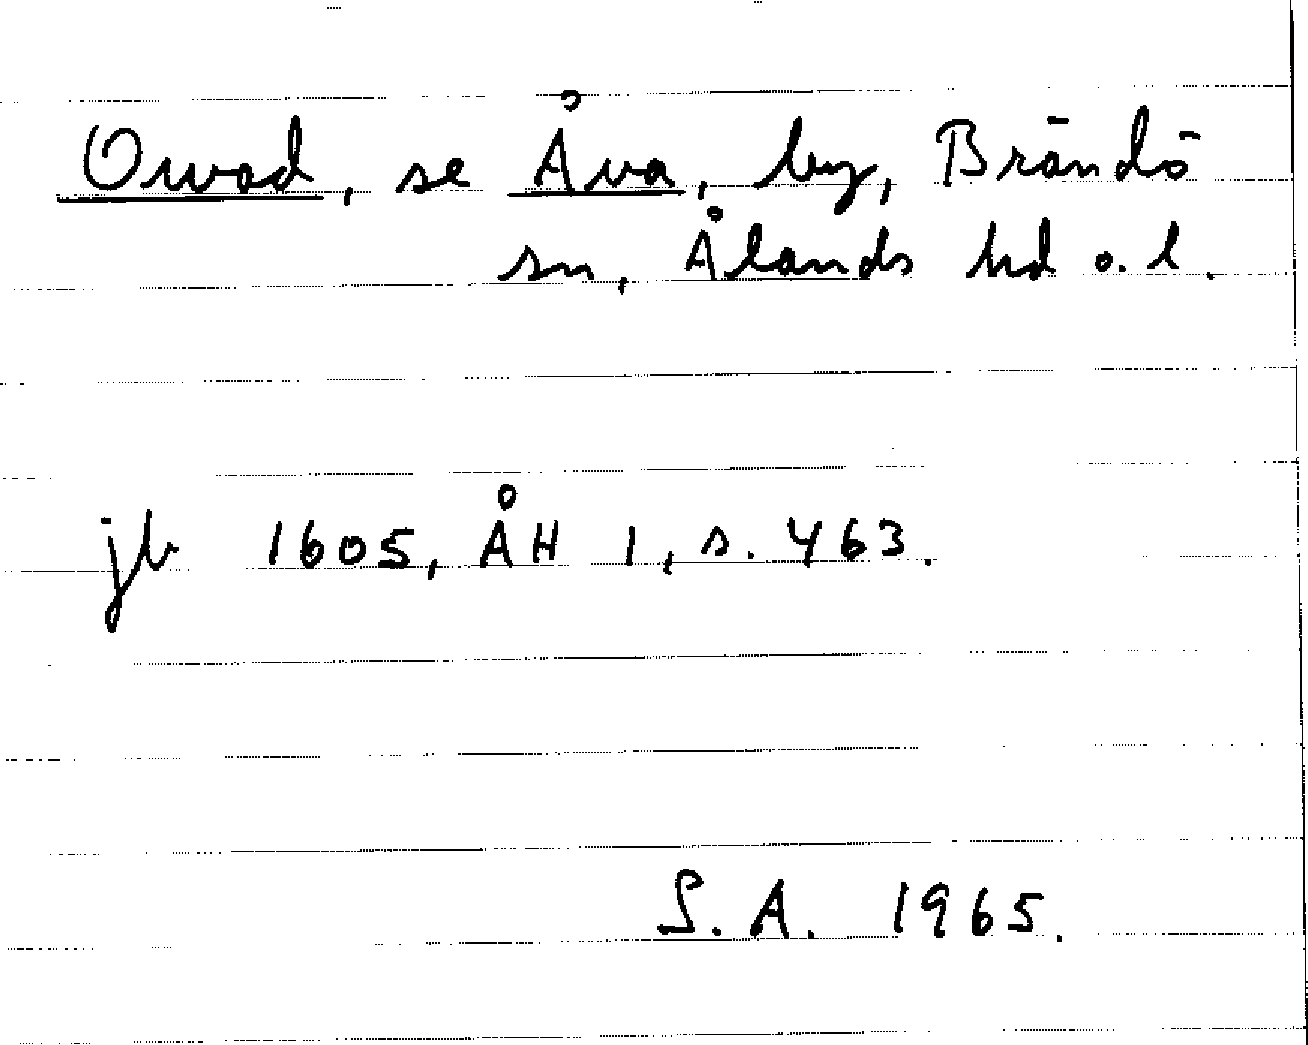 Owad, se Åva, by, Brändö
sn, Ålands hd o. l.
jb 1605, ÅH 1, s. 463.
S.A. 1965.